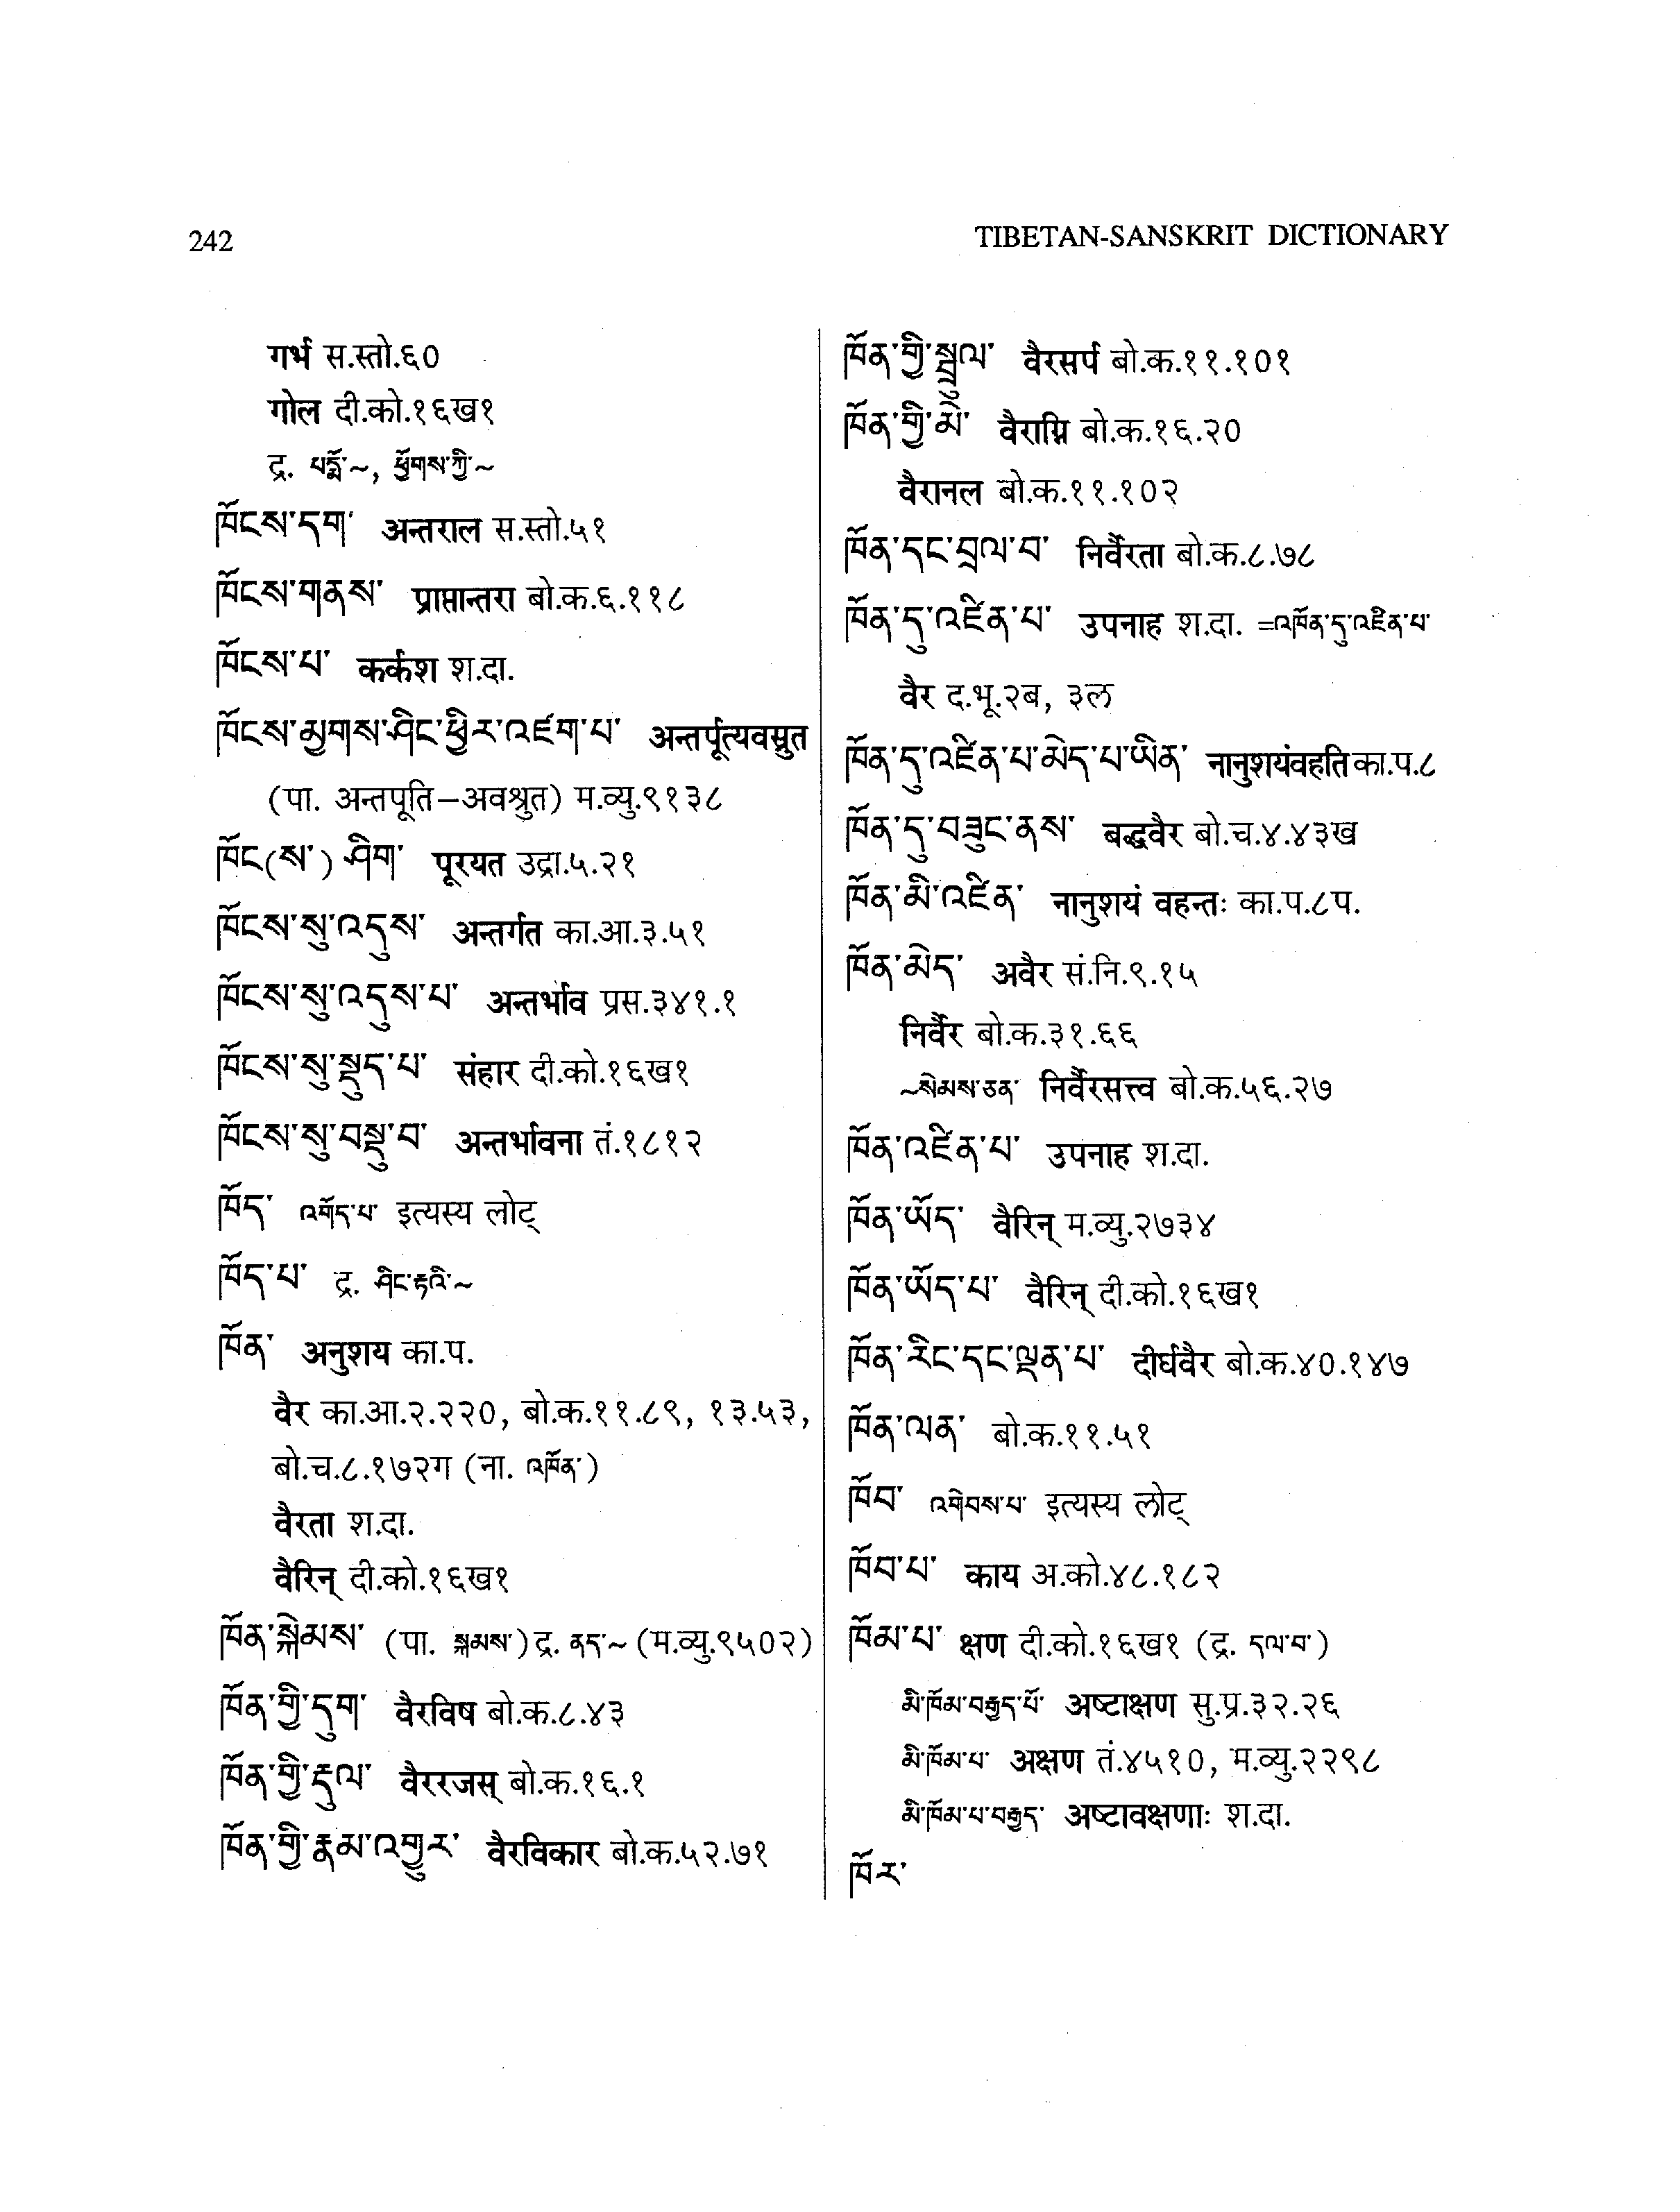 242
TIBETAN-SANSKRIT DICTIONARY
गर्भ स.स्तो.६०
गोल दी.को.१६ख१
द्र. པདྨོ་~, ཕྱོགས་ཀྱི་~
ཁོངས་དག་ अन्तराल स.स्तो.५१
ཁོངས་གནས་ प्राप्तान्तरा बो.क.६.११८
ཁོངས་པ་ कर्कश श.दा.
ཁོངས་མྱགས་ཤིང་ཕྱིར་འཛག་པ་ अन्तर्पूत्यवस्रुत
(पा. अन्तपूति–अवश्रुत) म.व्यु.९१३८
ཁོང(ས་) ཤིག་ पूरयत उद्रा.५.२१
ཁོངས་སུ་འདུས་ अन्तर्गत का.आ.३.५१
ཁོངས་སུ་འདུས་པ་ अन्तर्भाव प्रस.३४१.१
ཁོངས་སུ་སྡུད་པ་ संहार दी.को.१६ख१
ཁོངས་སུ་བསྡུ་བ་ अन्तर्भावना तं.१८१२
ཁོད་ འགོད་པ་ इत्यस्य लोट्
ཁོད་པ་ द्र. ཤིང་རྟའི་~
ཁོན་ अनुशय का.प.
वैर का.आ.२.२२०, बो.क.११.८९, १३.५३,
बो.च.८.१७२ग (ना. འཁོན་)
वैरता श.दा.
वैरिन् दी.को.१६ख१
ཁོན་སྐེམས་ (पा. སྐམས་) द्र. ནད་~ (म.व्यु.९५०२)
ཁོན་གྱི་དུག་ वैरविष बो.क.८.४३
ཁོན་གྱི་རྡུལ་ वैररजस् बो.क.१६.१
ཁོན་གྱི་རྣམ་འགྱུར་ वैरविकार बो.क.५२.७१
ཁོན་གྱི་སྦྲུལ་ वैरसर्प बो.क.११.१०१
ཁོན་གྱི་མེ་ वैराग्नि बो.क.१६.२०
वैरानल बो.क.११.१०२
ཁོན་དང་བྲལ་བ་ निर्वैरता बो.क.८.७८
ཁོན་དུ་འཛིན་པ་ उपनाह श.दा. =འཁོན་དུ་འཛིན་པ་
वैर द.भू.२ब, ३ल
ཁོན་དུ་འཛིན་པ་མེད་པ་ཡིན་ नानुशयंवहति का.प.८
ཁོན་དུ་བཟུང་ནས་ बद्धवैर बो.च.४.४३ख
ཁོན་མི་འཛིན་ नानुशयं वहन्तः का.प.८प.
ཁོན་མེད་ अवैर सं.नि.९.१५
निर्वैर बो.क.३१.६६
~སེམས་ཅན་ निर्वैरसत्त्व बो.क.५६.२७
ཁོན་འཛིན་པ་ उपनाह श.दा.
ཁོན་ཡོད་ वैरिन् म.व्यु.२७३४
ཁོན་ཡོད་པ་ वैरिन् दी.को.१६ख१
ཁོན་རིང་དང་ལྡན་པ་ दीर्घवैर बो.क.४०.१४७
ཁོན་ལན་ बो.क.११.५१
ཁོབ་ འགེབས་པ་ इत्यस्य लोट्
ཁོབ་པ་ काय अ.को.४८.१८२
ཁོམ་པ་ क्षण दी.को.१६ख१ (द्र. དལ་བ་)
མི་ཁོམ་བརྒྱད་པོ་ अष्टाक्षण सु.प्र.३२.२६
མི་ཁོམ་པ་ अक्षण तं.४५१०, म.व्यु.२२९८
མི་ཁོམ་པ་བརྒྱད་ अष्टावक्षणाः श.दा.
ཁོར་